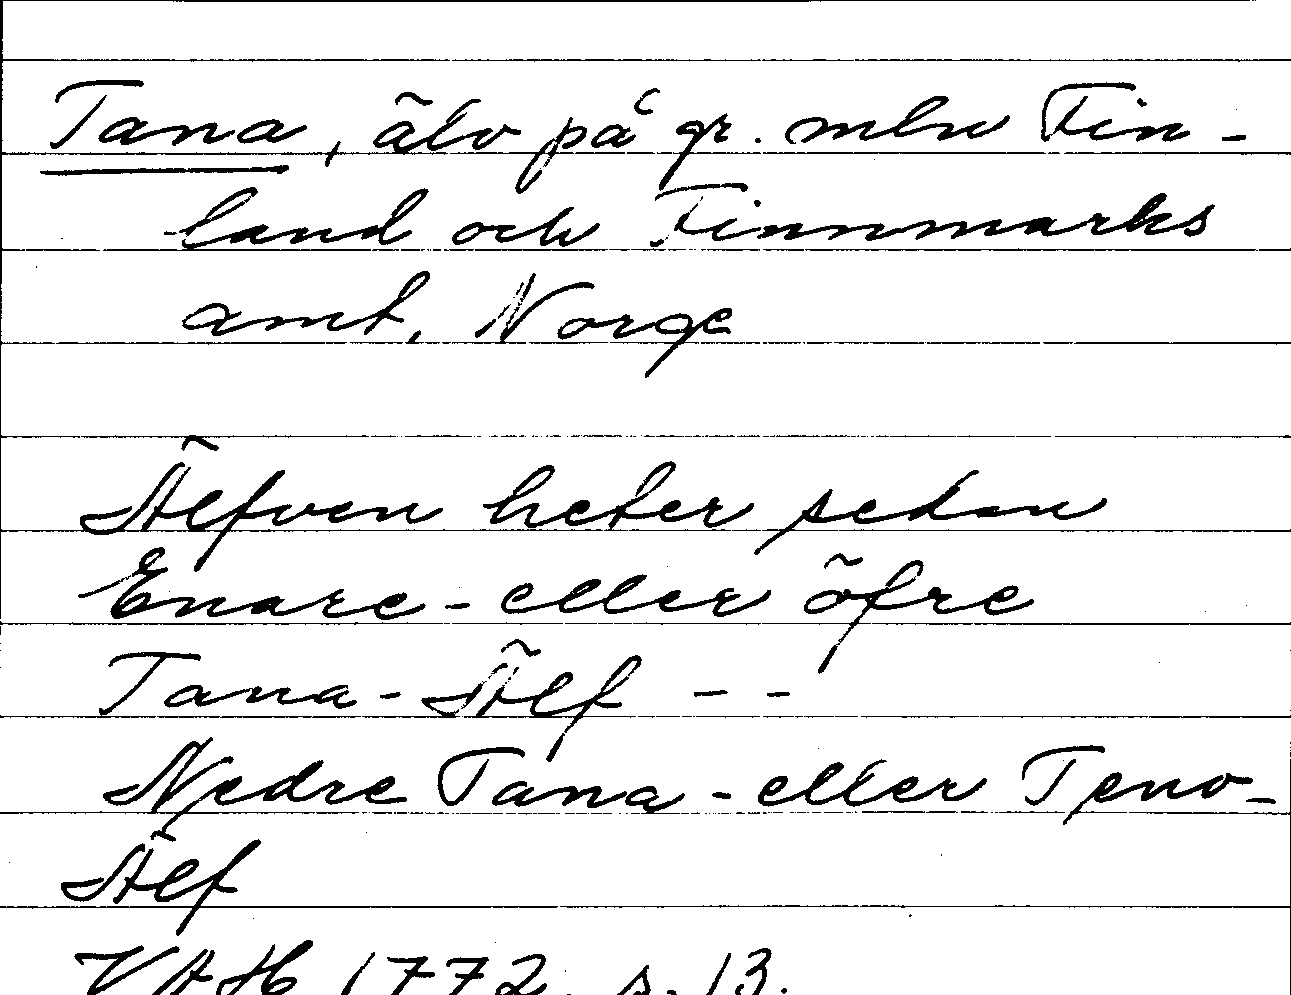 Tana, älv på gr. mln Fin-
land och Finnmarks
amt, Norge
Älfven heter sedan
Enare- eller öfre
Tana-Älf - -
Nedre Tana- eller Teno-
Älf
VAH 1772. s. 13.